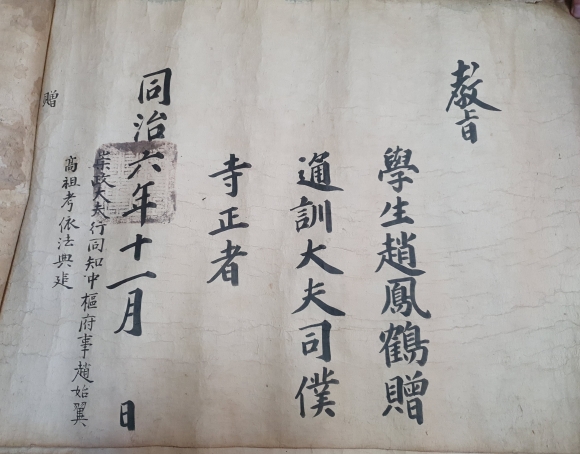 教旨
學生趙鳳鶴贈
通訓大夫司僕
寺正者
同治六年十一月 日
崇政大夫行同知中樞府事趙始翼
高祖考依法典追
贈